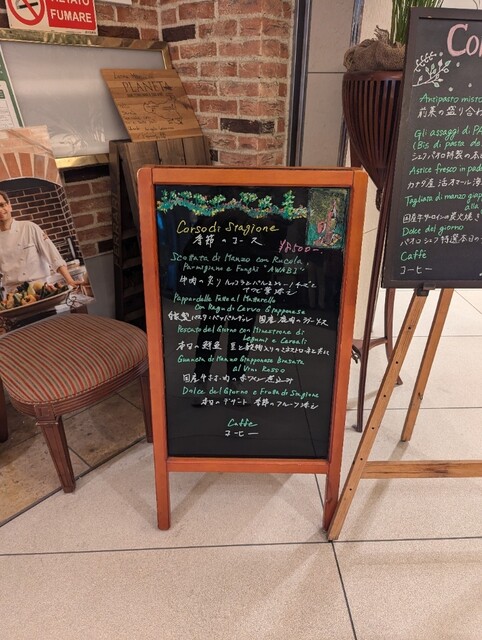 VIETATO
FUMARE
PLANET
Corso di stagione
季節のコース
¥8,500-
Scottata di Manzo con Rucola,
Parmigiano e Funghi "AWABI"
牛肉の炙り
Pappardelle Fatte al Mattarello
con Ragu di Cervo Giapponese
国産 鹿肉のラグーソース
Pescato del Giorno con Minestrone di
Legumi e Cereali
本日の鮮魚 豆と穀物入りのミネストローネと共に
Guancia di Manzo Giapponese Brasata
al Vino Rosso
国産牛ホホ肉の赤ワイン煮込み
Dolce del Giorno e Frutta di Stagione
本日のデザート 季節のフルーツ添え
Caffe
コーヒー
Co
Antipasto misto
前菜の盛り合わ
Gli assaggi di PA
(Bis di pasta da
シェフパオロ特製の
Astice fresco in pad
カナダ産 活オマール海
Tagliata di manzo giap
alla
国産牛サーロインの炭火焼き
Dolce del giorno
パオロシェフ特選本日の
Caffè
コーヒー